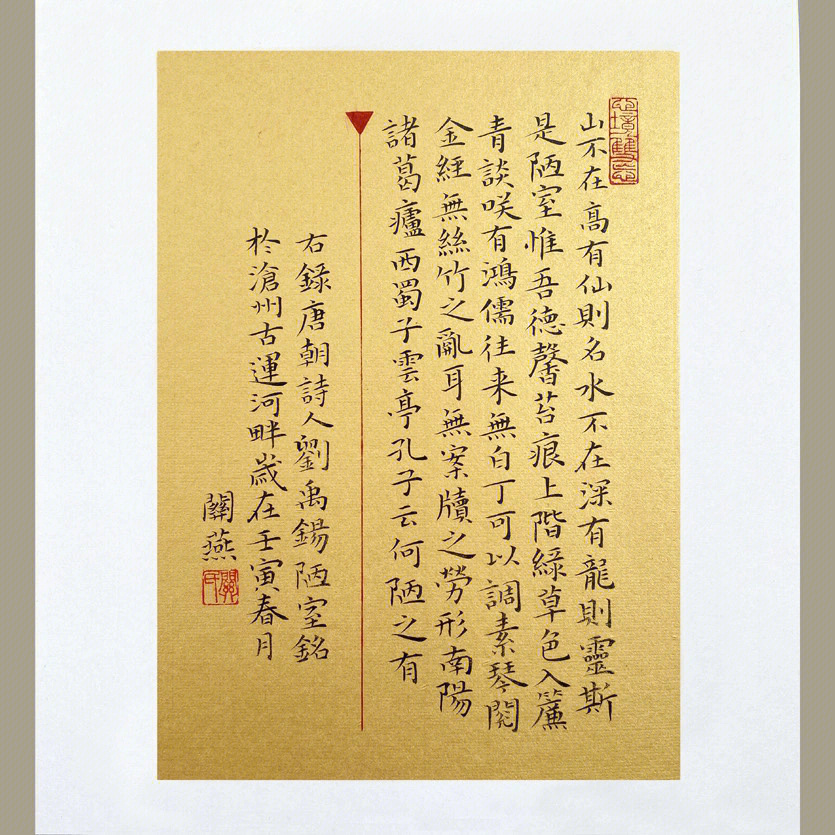 心境雙忘
山不在髙有仙則名水不在深有龍則靈斯
是陋室惟吾德馨苔痕上階綠草色入簾
青談咲有鴻儒往来無白丁可以調素琴閱
金經無絲竹之亂耳無案牘之勞形南陽
諸葛廬西蜀子雲亭孔子云何陋之有
右錄唐朝詩人劉禹錫陋室銘
於滄州古運河畔歲在壬寅春月
關燕
關氏